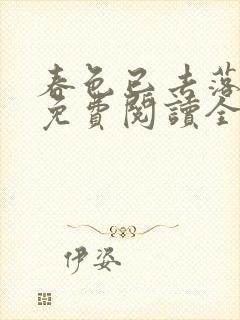 春色已去落
免費閱讀全
伊姿